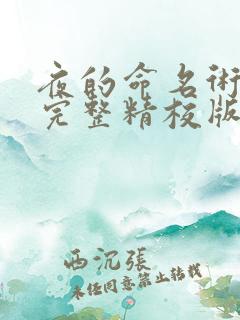 夜的命名術
完整精校版
西沉張
未经同意禁止转载